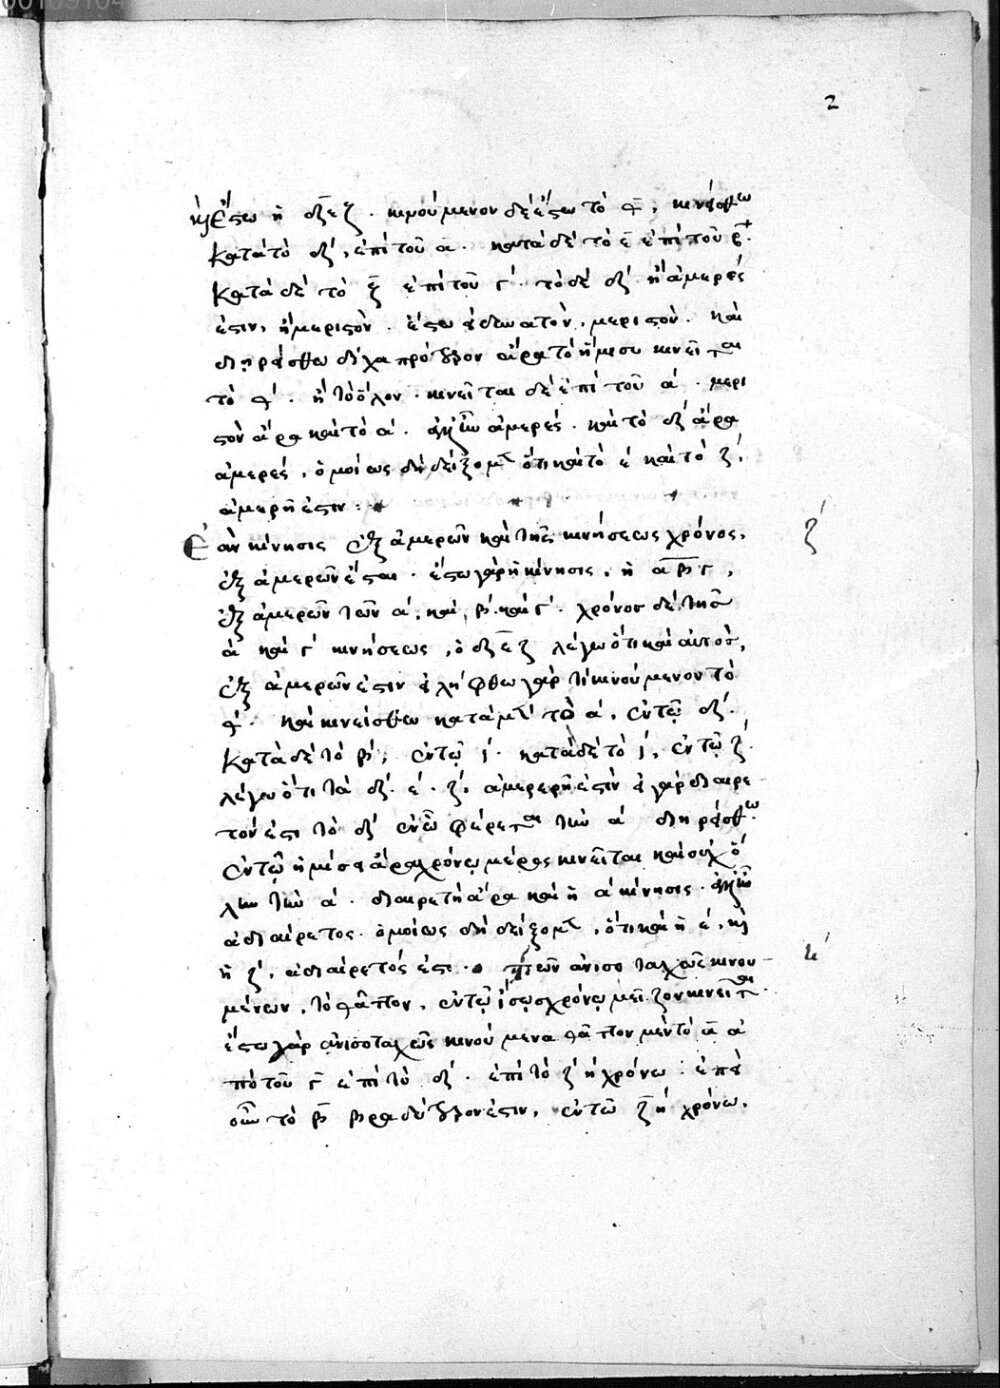 2
καὶ ἔστω ἡ δ̅ε̅ζ̅. κινούμενον δὲ ἔστω τὸ θ̅, κινείσθω
κατὰ τὸ δ́, ἐπὶ τοῦ α̅. κατὰ δὲ τὸ ε̅ ἐπὶ τοῦ β̅.
κατὰ δὲ τὸ ζ̅ ἐπὶ τοῦ γ́. τὸ δὲ δ́ ἢ ἀμερές
ἐστιν, ἢ μεριστὸν. ἔστω εἰ δυνατὸν, μεριστὸν. καὶ
διῃρείσθω δίχα πρόδηλον ἄρα τὸ ἥμισυ κινεῖται
τὸ θ́. ἢ τὸ ὅλον. κινεῖται δὲ ἐπὶ τοῦ ά. μερι
στὸν ἄρα καὶ τὸ ά. ἀλλ' ἦν ἀμερές. καὶ τὸ δ́ ἄρα
ἀμερές, ὁμοίως δὴ δείξομεν ὅτι καὶ τὸ έ καὶ τὸ ζ́,
ἀμερῆ ἐστιν.
Ἐὰν κίνησις ἐξ ἀμερῶν καὶ τῆς κινήσεως χρόνος,
ζ́
ἐξ ἀμερῶν ἔσται. ἔστω γὰρ ἡ κίνησις, ἡ α̅β̅γ̅,
ἐξ ἀμερῶν τῶν ά, καὶ, β́ καὶ γ́. χρόνος δὲ τῆς
ά καὶ γ́ κινήσεως, ὁ δ̅ε̅ζ̅ λέγω ὅτι καὶ αὐτὸς,
ἐξ ἀμερῶν ἐστιν εἰλήφθω γὰρ τι κινούμενον τὸ
θ́. καὶ κινείσθω κατὰ μὲν τὸ ά, ἐν τῷ δ́.
κατὰ δὲ τὸ β́, ἐν τῷ . κατὰ δὲ τὸ , ἐν τῷ ζ́.
λέγω ὅτι τὰ δ́. έ. ζ́, ἀμερερῆ ἐστὶν εἰ γὰρ διαιρε
τόν ἐστι τὸ δ́ ἐν ᾧ φέρεται τὴν ά διῃρείσθω.
ἐν τῷ ἡμίσει ἄρα χρόνῳ μέρος κινεῖται καὶ οὐχ ὅ
λην τὴν ά. διαιρετὴ ἄρα καὶ ἡ ά κίνησις. ἀλλ' ἦν
ἀδιαίρετος. ὁμοίως δὴ δείξομεν, ὅτι καὶ ἡ έ, καὶ
ἡ ζ́, ἀδιαίρετός ἐστι. τῶν ἀνισοταχῶς κινου
ή
μένων, τὸ θᾶττον, ἐν τῷ ἴσῳ χρόνῳ μεῖζον κινεῖται.
ἔστω γὰρ ἀνισοταχῶς κινούμενα θᾶττον μὲν τὸ α̅ ἀ
πὸ τοῦ γ̅ ἐπὶ τὸ δ́. ἐπὶ τὸ ζ́ ή χρόνω. ἐπεὶ
οὖν τὸ β̅ βραδύτερον ἐστιν, ἐν τῶ ζ̅ή χρόνω,